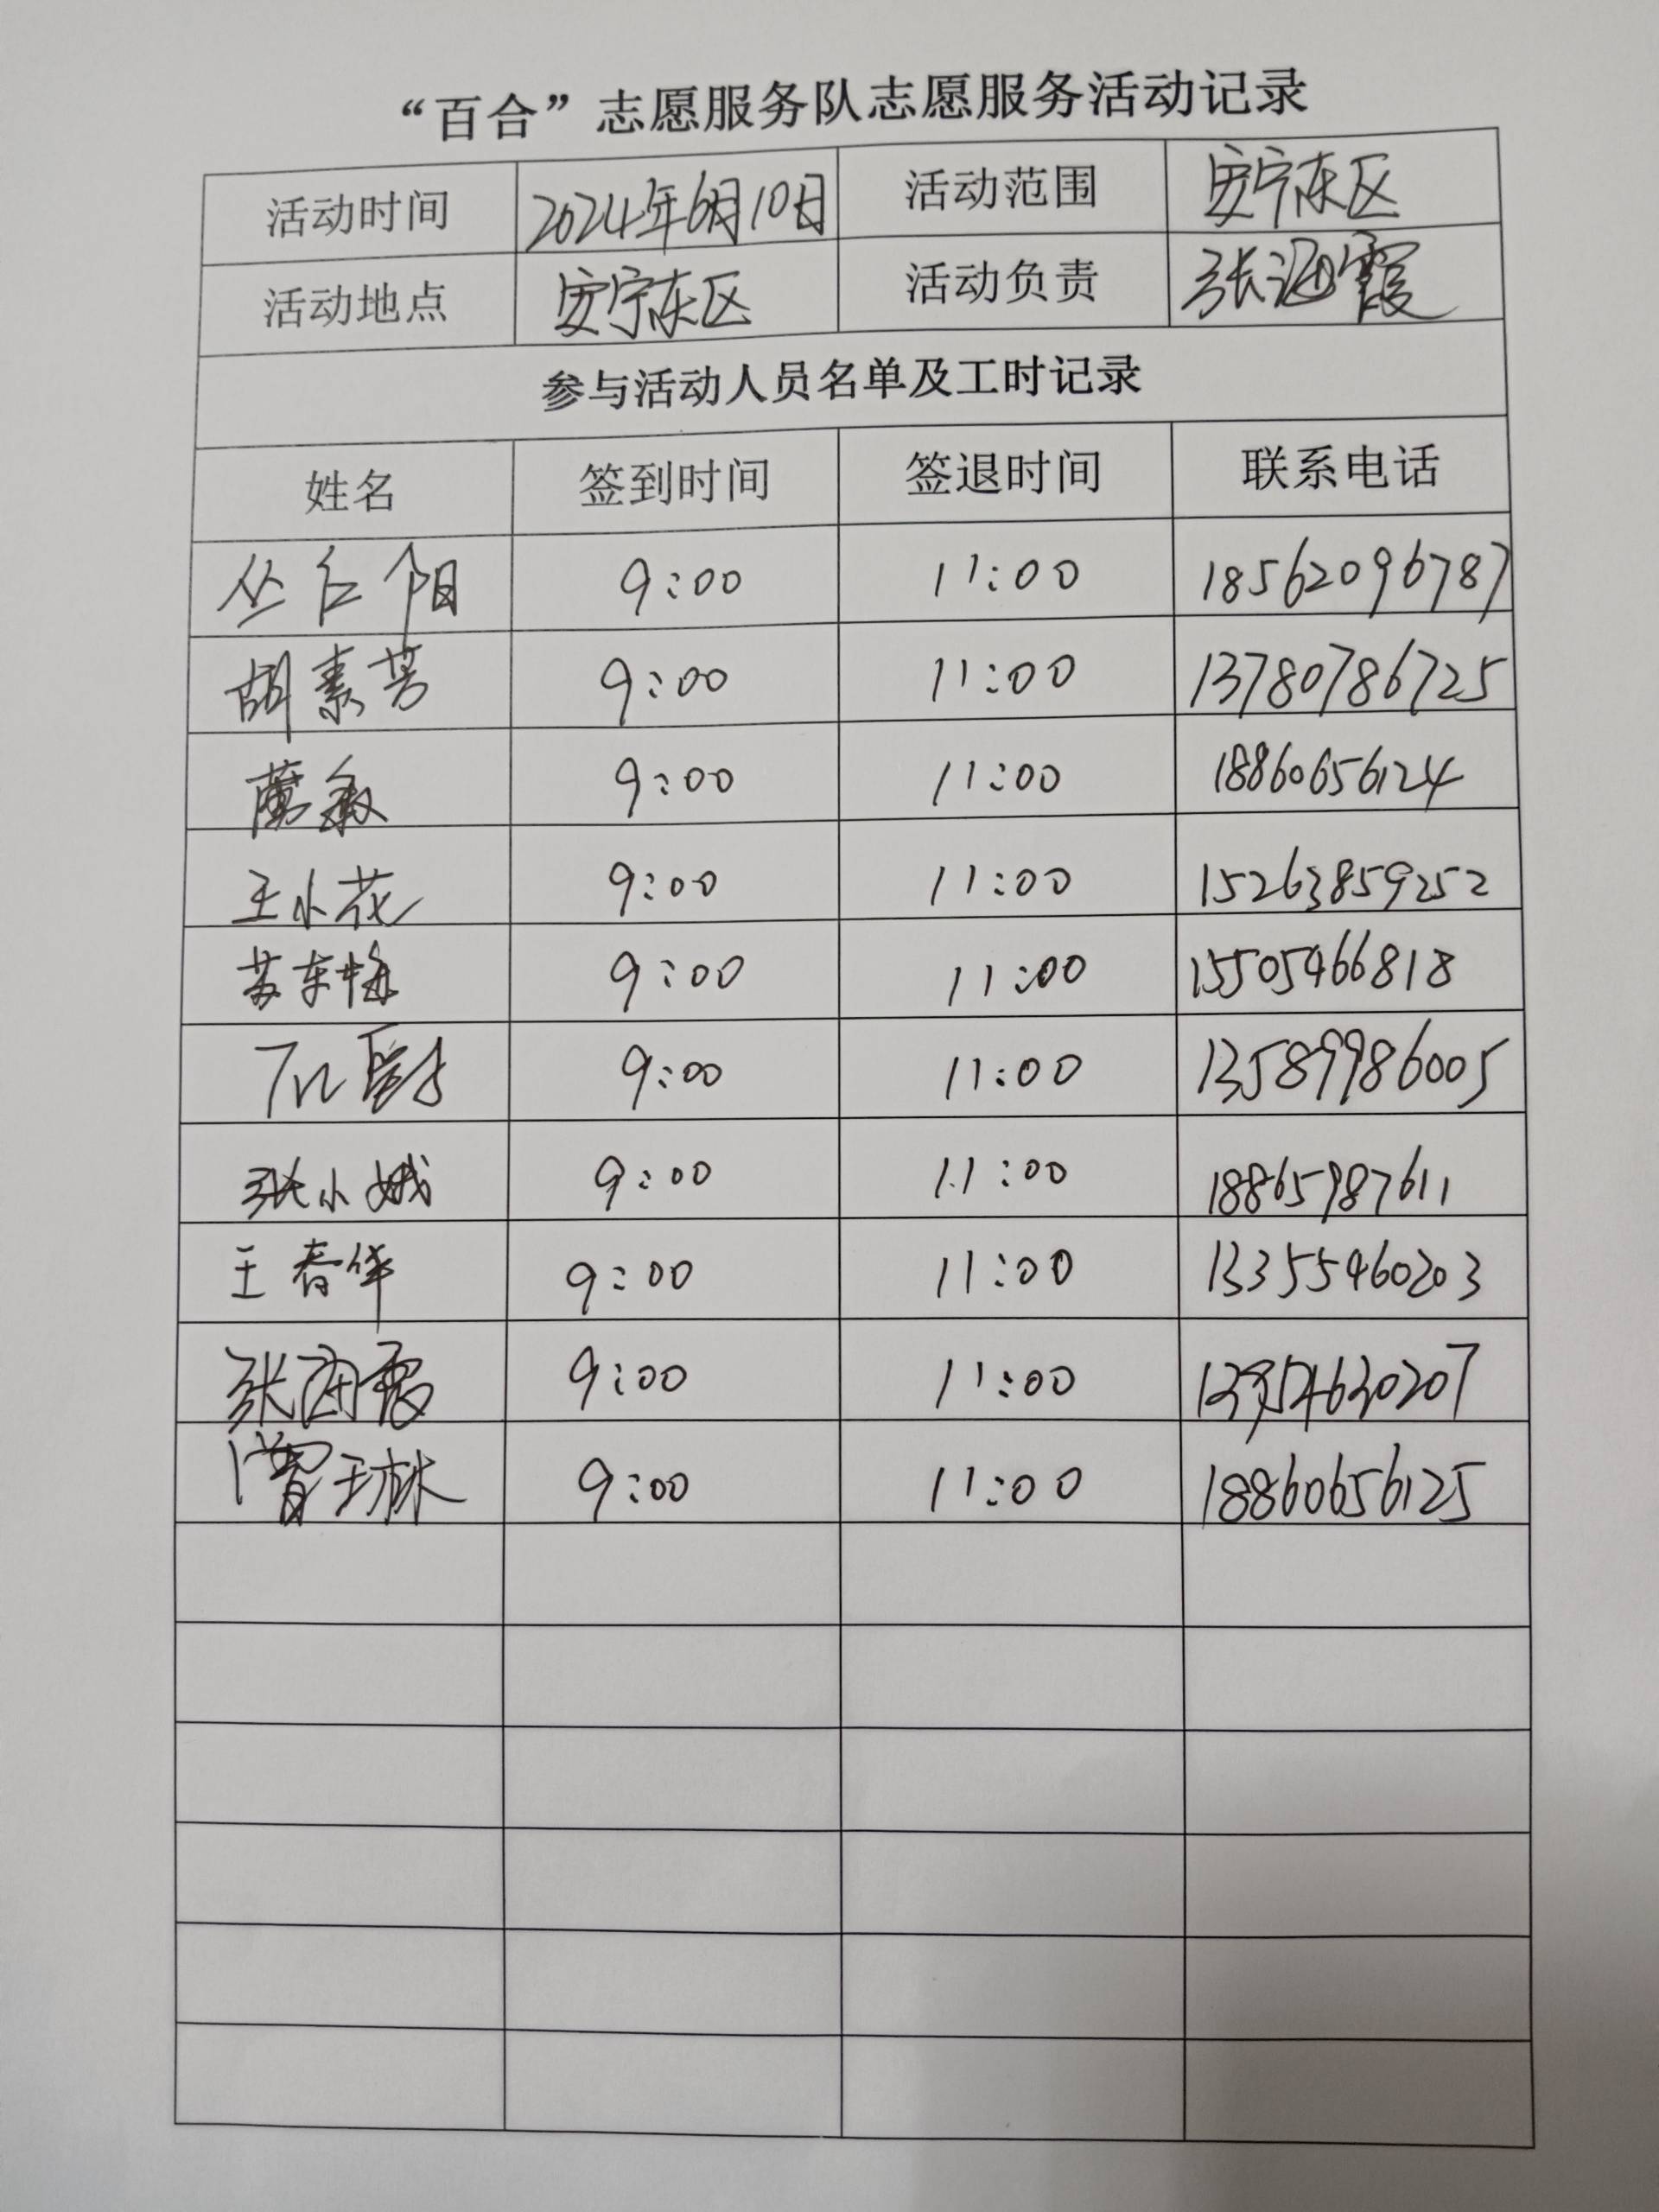 “百合”志愿服务队志愿服务活动记录
活动时间 2024年6月10日 活动范围 安宁东区
活动地点 安宁东区 活动负责 张海霞
参与活动人员名单及工时记录
姓名 签到时间 签退时间 联系电话
丛仁阳 9:00 11:00 18562096787
胡素芳 9:00 11:00 13780786725
9:00 11:00 18860656124
王小花 9:00 11:00 15263859252
苏东梅 9:00 11:00 15505466818
9:00 11:00 13589986005
张小娥 9:00 11:00 18865987611
王春华 9:00 11:00 13355460203
张海霞 9:00 11:00
曹玉林 9:00 11:00 18860656125